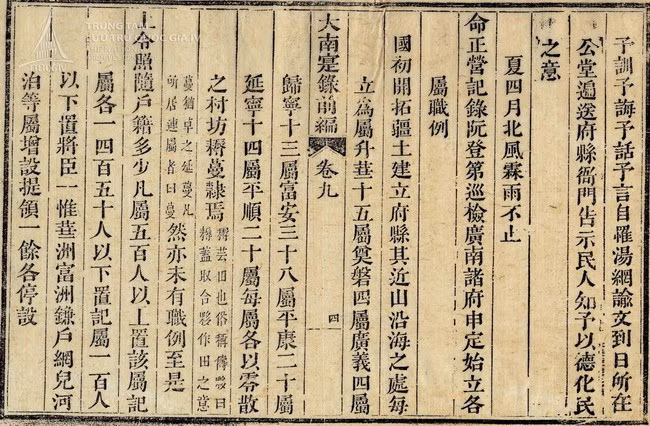 TRUNG TÂM
LƯU TRỮ QUỐC GIA IV
予訓予誨予話予言自罹湯網諭文到日所在
公堂遍送府縣衙門告示民人知予以德化民
之意
夏四月北風霖雨不止
命正營記錄阮登第巡檢廣南諸府申定始立各
屬職例
國初開拓疆土建立府縣其近山沿海之處每
立為屬升華十五屬奠磐四屬廣義四屬
大南寔錄前編 卷九 四
歸寧十三屬富安三十八屬平康二十屬
延寧十四屬平順二十屬每屬各以零散
之村坊耨蔓隸焉耨芸田也俗稱儔夥曰耨蓋取合夥作田之意
蔓猶草之延蔓凡所居連屬者曰蔓然亦未有職例至是
上令照隨戶籍多少凡屬五百人以上置該屬記
屬各一四百五十人以下置記屬一百人
以下置將臣一惟華洲富洲鎌戶網兒河
泊等屬增設提領一餘各停設